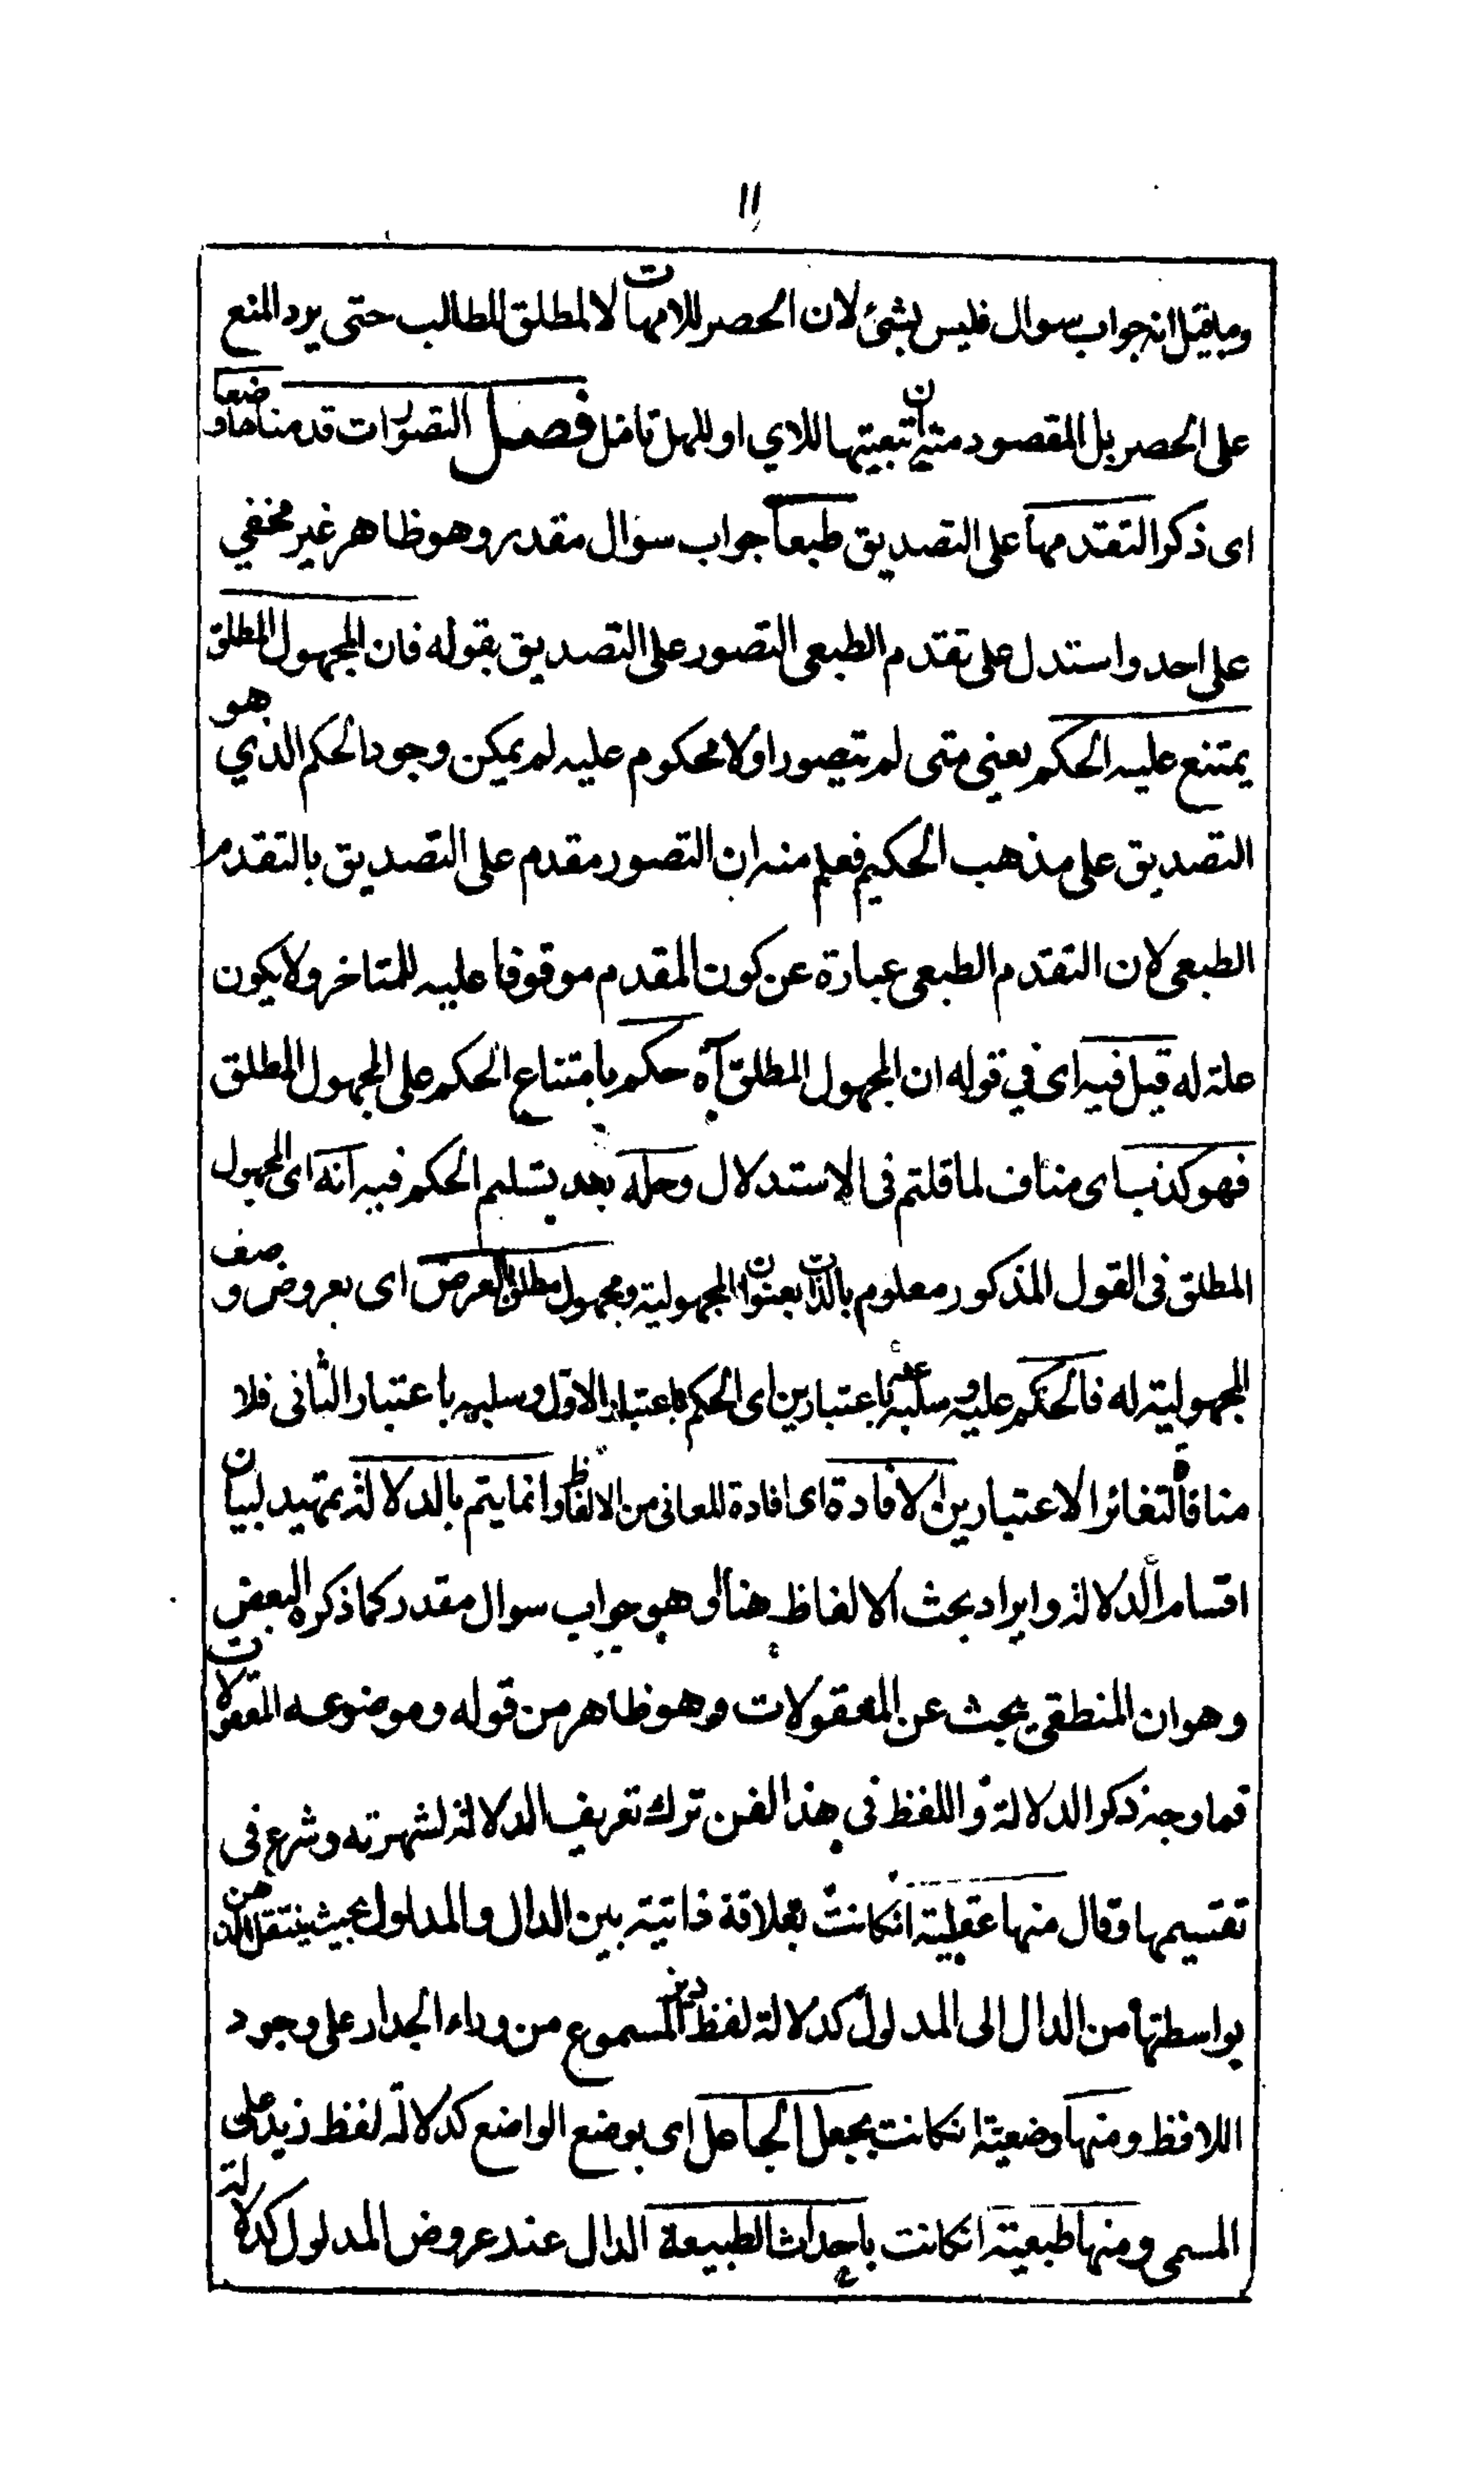 ۱۱
وما قيل انه جواب سوال فليس بشئ لان الحصر للامهات لا لمطلق المطالب حتى يرد المنع
على الحصر بل المقصود منه ان تبعيتها للاي او للهل تامل فصل التصورات قدمناها وضعا
اى ذكرا لتقدمها على التصديق طبعا جواب سوال مقدر وهو ظاهر غير مخفي
على احد واستدل على تقدم الطبعى التصور على التصديق بقوله فان المجهول المطلق
يمتنع عليه الحكم يعني متى لم يتصور اولا محكوم عليه لم يمكن وجود الحكم الذي هو
التصديق على مذهب الحكيم فعلم منه ان التصور مقدم على التصديق بالتقدم
الطبعى لان التقدم الطبعى عبارة عن كون المقدم موقوفا عليه للمتاخر ولا يكون
علة له قيل فيه اى في قوله ان المجهول المطلق آه حكم بامتناع الحكم على المجهول المطلق
فهو كذب اى مناف لما قلتم فى الاستدلال وحله بعد تسليم الحكم فيه انه اى المجهول
المطلق فى القول المذكور معلوم بالذات بعنوان المجهولية ومجهول مطلق بالعرض اى بعروض وصف
المجهولية له فالحكم عليه وسلبه عنه باعتبارين اى الحكم باعتبار الاول وسلبه باعتبار الثانى فلا
منافاة لتغائر الاعتبارين الافادة اى افادة للمعانى من الالفاظ وانما يتم بالدلالة تمهيد لبيان
اقسام الدلالة وايراد بحث الالفاظ هنا وهو جواب سوال مقدر كما ذكره البعض
وهو ان المنطقى يبحث عن المعقولات وهو ظاهر من قوله وموضوعه المعقولات
فما وجه ذكر الدلالة واللفظ فى هذا الفن ترك تعريف الدلالة لشهرته وشرع فى
تقسيمها وقال منها عقلية انكانت بعلاقة ذاتية بين الدال والمدلول بحيث ينتقل الذهن
بواسطتها من الدال الى المدلول كدلالة لفظ ديز المسموع من وراء الجدار على وجود
اللافظ ومنها وضعية انكانت بجعل الجاعل اى بوضع الواضع كدلالة لفظ زيد على
المسمى ومنها طبعية انكانت باحداث الطبيعة الدال عند عروض المدلول كدلالة